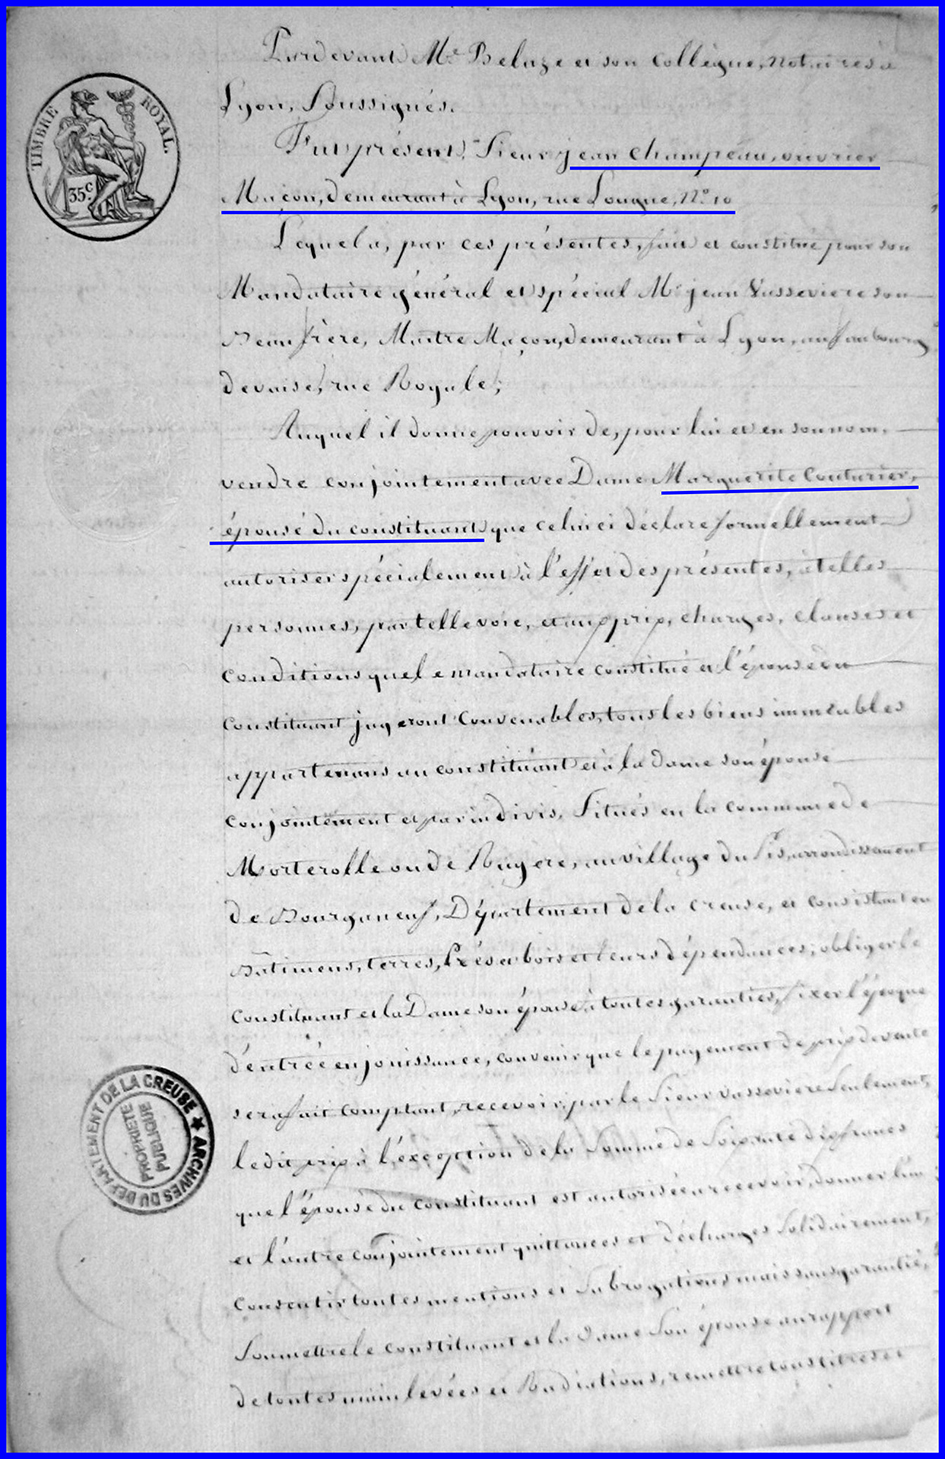 Pardevant Me Beluze et son Collègue, Notaires à
Lyon, Soussignés.
TIMBRE ROYAL.
35c.
Fut présent Sieur jean Champeau, ouvrier
Maçon, demeurant à Lyon, rue Longue, No. 10
Lequel a, par ces présentes, fait et constitué pour son
Mandataire général et spécial Mr jean Vasseviere son
Beau frère, Maitre Maçon, demeurant à Lyon, au faubourg
de vaise, rue Royale;
Auquel il donne pouvoir de, pour lui et en son nom,
vendre conjointement avec Dame Marguerite Couturier,
épouse du constituant que celui ci déclare formellement
autoriser spécialement à l'effet des présentes, à telles
personnes, par telle voie, et aux prix, charges, clauses et
conditions que le mandataire constitué et l'épouse du
constituant jugeront convenables, tous les biens immeubles
appartenans au constituant et à la dame son épouse
conjointement et par indivis, Situés en la commune de
Morterolle ou de Bugère, au village du arrondissement
de Bourganeuf, Département de la Creuse, et consistant en
Bâtimens, terres, Prés et bois et leurs dépendances; obliger le
Constituant et la Dame son épouse à toutes garanties, fixer l'époque
d'entrée en jouissance, convenir que le payement du prix de vente
sera fait comptant, recevoir par le Sieur Vasseviere seulement,
ledit prix à l'exception de la Somme de Soixante dix francs
que l'épouse du constituant est autorisée à recevoir, donner l'un
et l'autre conjointement quittances et décharges Solidairement,
Consentir toutes mentions et Subrogations mais sans garantie,
Soumettre le constituant et la Dame Son épouse au rapport
de toutes main levées et Radiations, remettre tous titres et
ARCHIVES DU DEPARTEMENT DE LA CREUSE
PROPRIETE
PUBLIQUE